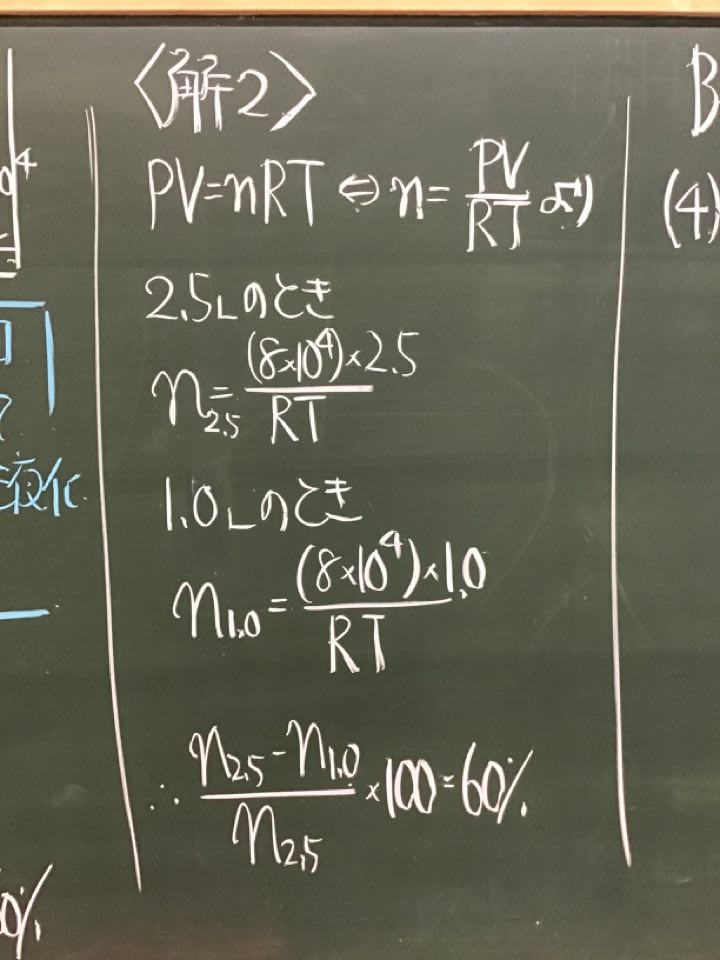 〈解2〉
PV=nRT⇔n=PV/RT より
2.5Lのとき
n2.5=(8×10⁴)×2.5/RT
1.0Lのとき
n1.0=(8×10⁴)×1.0/RT
∴ n2.5-n1.0/n2.5 ×100=60%
B
(4)
液化
0%